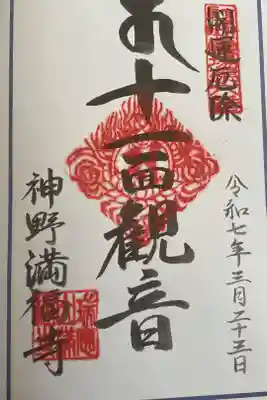 開運厄除
十一面観音
令和七年三月二十三日
神野満福寺